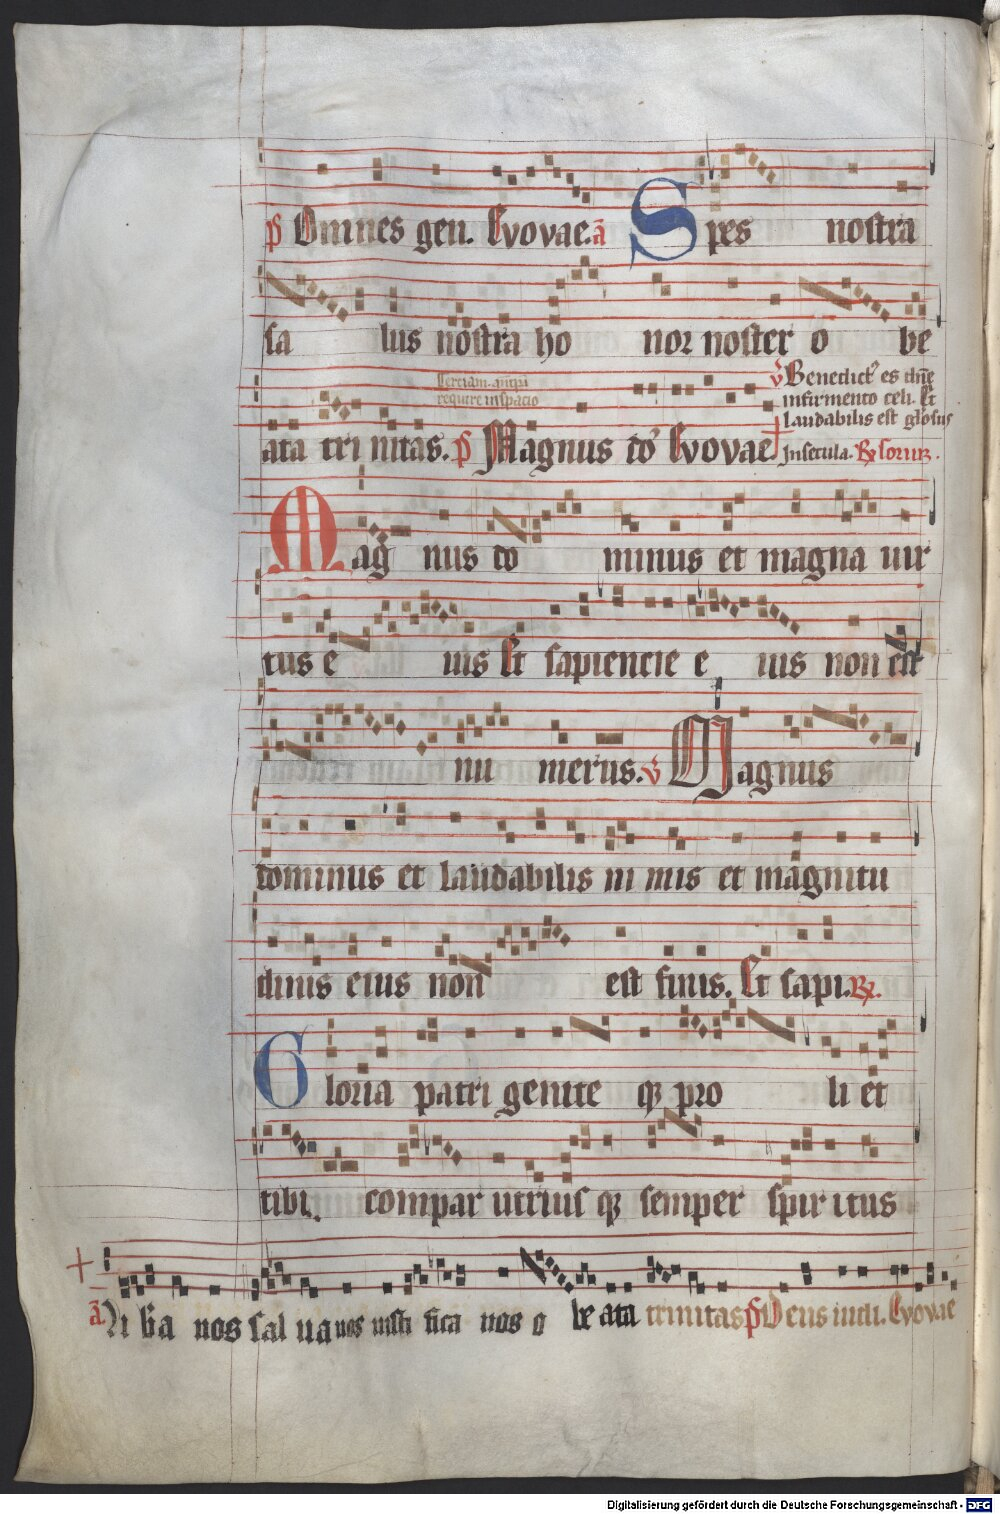 ps Omnes gen. Evovae. a Spes nostra
sa lus nostra ho nor noster o be
Terciam antipha
require in spacio
v Benedict' es dne
in firmento celi. Et
laudabilis est glosus
ata tri nitas. ps Magnus do' Evovae
In secula. R sorum.
Mag nus do minus et magna uir
tus e ius Et sapiencie e ius non est
nu merus. v Magnus
dominus et laudabilis ni mis et magnitu
dinis eius non est finis. Et sapi. R.
Gloria patri genite q pro li et
tibi. compar utrius q semper spiritus
a Li ba nos sal ua nos iusti fica nos o be ata trinitas ps Deus iudi. Evovae
Digitalisierung gefördert durch die Deutsche Forschungsgemeinschaft - DFG